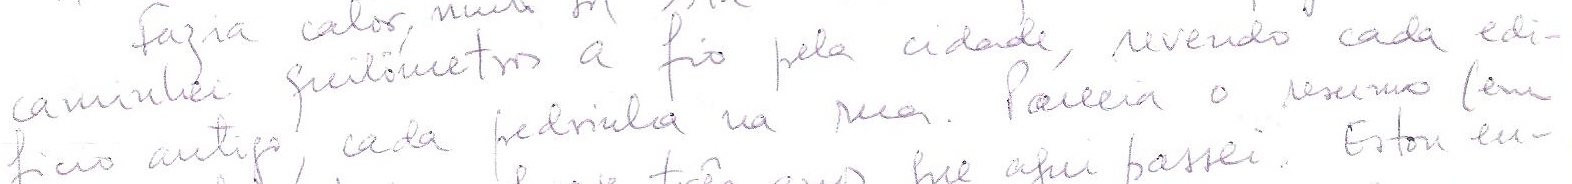 Fazia calor,
caminhei quilômetros a fio pela cidade, revendo cada edi-
fício antigo, cada pedrinha na rua. Parecia o resumo (em
três anos que aqui passei. Estou en-